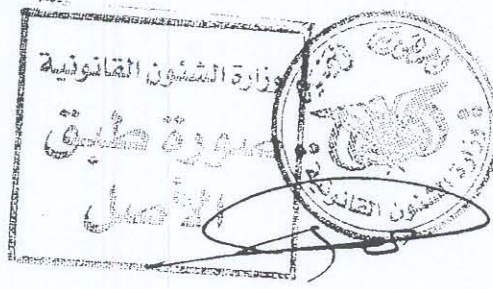 وزارة الشئون القانونية
صورة طبق
الأصل
وزارة الشئون القانونية